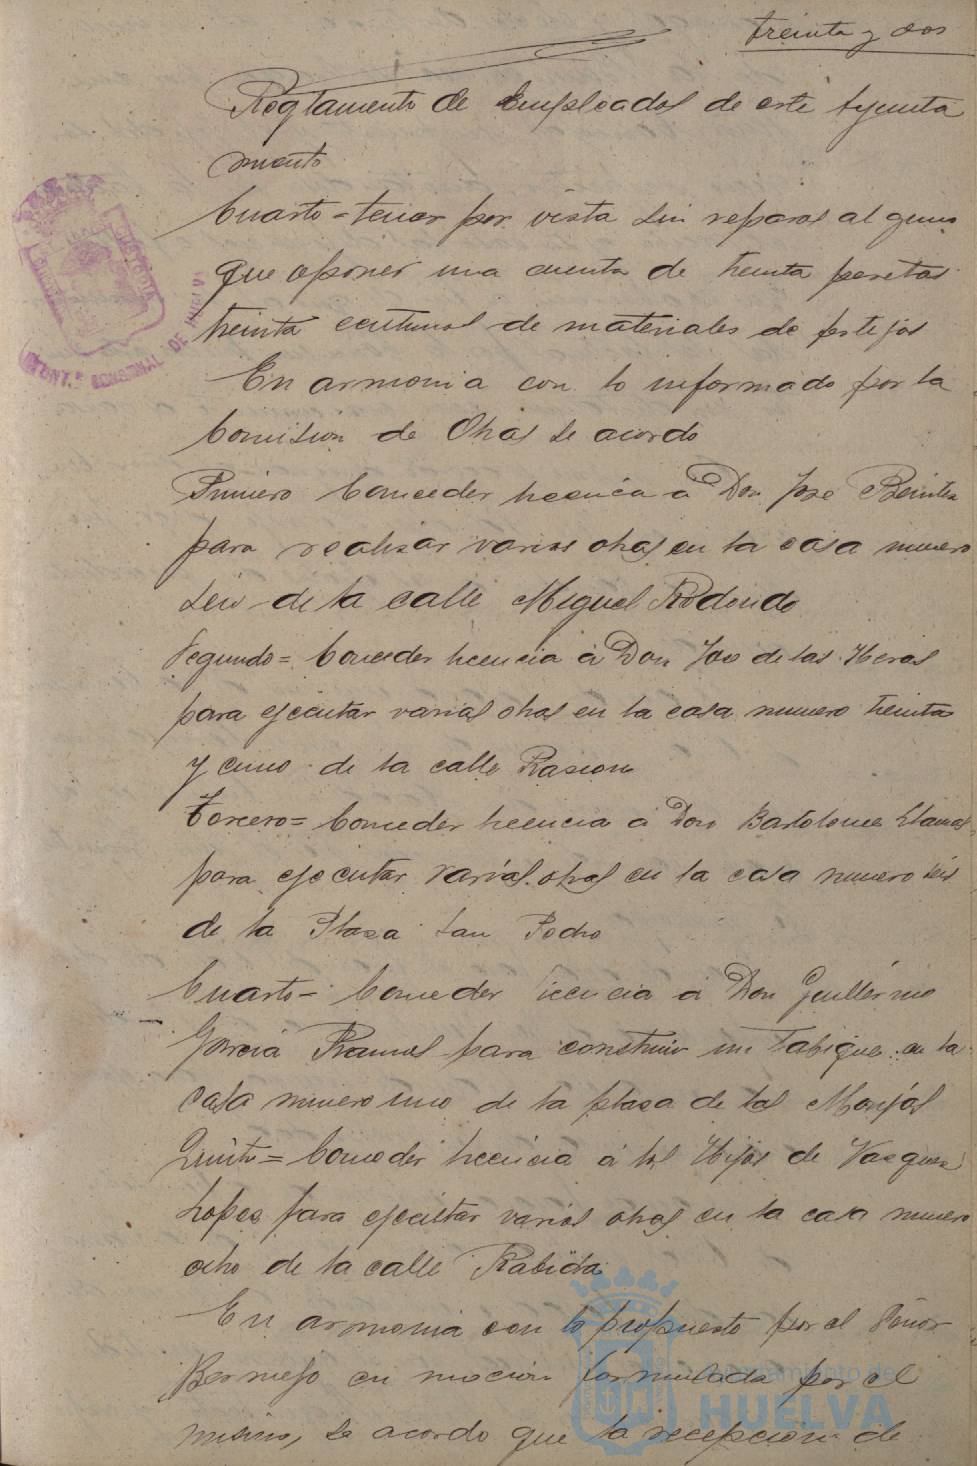 treinta y dos
Reglamento de Empleados de este Ayunta
miento
Cuarto = tener por vista sin reparos alguno
que oponer una cuenta de treinta pesetas
treinta centimos de materiales de festejos
En armonia con lo informado por la
Comision de Obras se acordo
Primero Conceder licencia a Don Jose Benitez
para realizar varias obras en la casa numero
seis de la calle Miguel Redondo
Segundo = Conceder licencia a Don de las Heras
para ejecutar varias obras en la casa numero treinta
y cinco de la calle Rascon
Tercero = Conceder licencia a Don Bartolome Llamas
para ejecutar varias obras en la casa numero seis
de la Plaza San Pedro
Cuarto = Conceder licencia a Don Guillermo
Garcia Ramos para construir un tabique en la
casa numero uno de la plaza de las Monjas
Quinto = Conceder licencia a los Hijos de Vazquez
Lopez para ejecutar varias obras en la casa numero
ocho de la calle Rabida
En armonia con lo propuesto por el Señor
Bermejo en mocion formulada por el
mismo, se acordo que la recepcion de
Ayuntamiento de
HUELVA